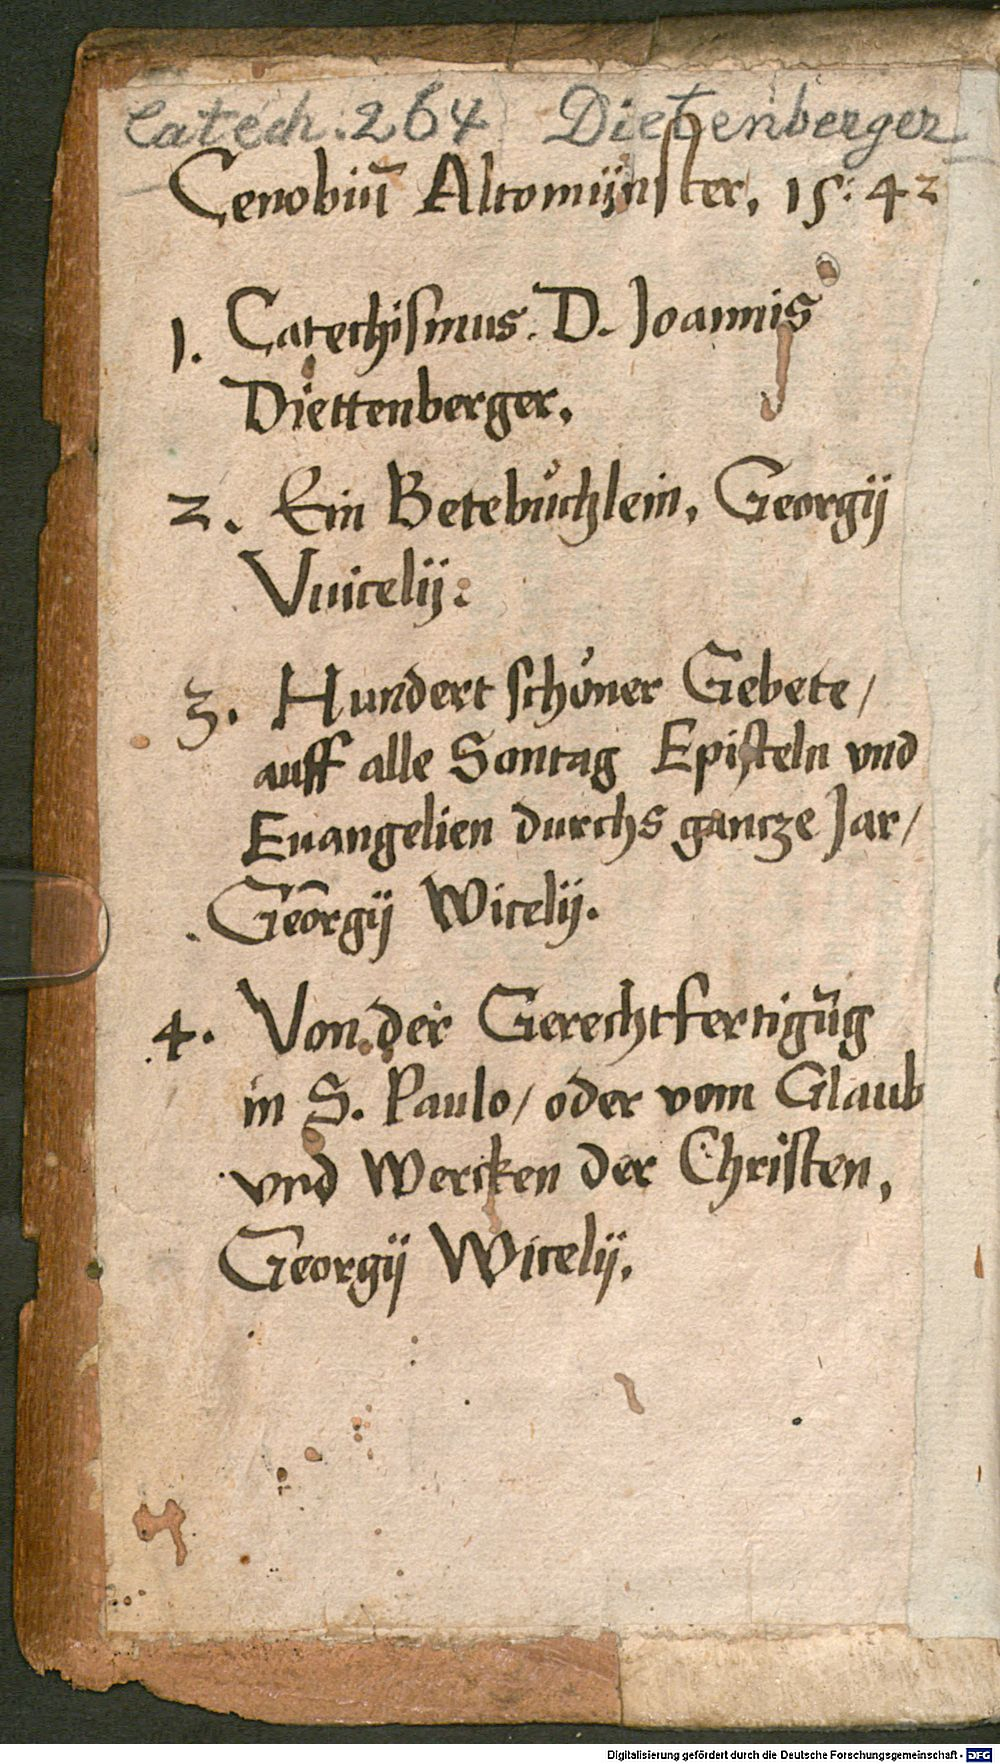 Catech. 264 Dietenberger
Cenobiū Altomünster, 15:42
1. Catechismus. D. Joannis
Diettenberger.
2. Ein Betebüchlein, Georgij
Vuicelij:
3. Hundert schöner Gebete/
auff alle Sontag Episteln vnd
Euangelien durchs gancze Jar/
Georgij Wicelij.
4. Von der Gerechtfertigūg
in S. Paulo/ oder vom Glaub
vnd Wercken der Christen,
Georgij Wicelij.
Digitalisierung gefördert durch die Deutsche Forschungsgemeinschaft - DFG